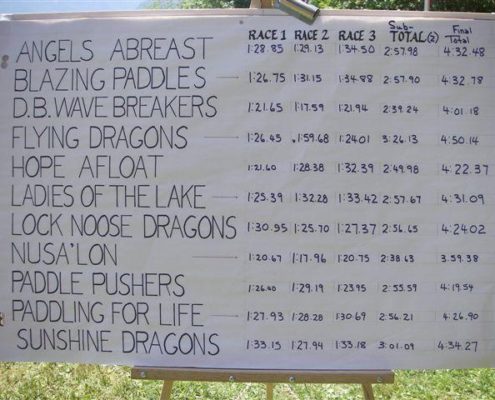 RACE 1 RACE 2 RACE 3 Sub-TOTAL(2) Final Total
ANGELS ABREAST 1:28.85 1:29.13 1:34.50 2:57.98 4:32.48
BLAZING PADDLES 1:26.75 1:31.15 1:34.88 2:57.90 4:32.78
D.B. WAVE BREAKERS 1:21.65 1:17.59 1:21.94 2:39.24 4:01.18
FLYING DRAGONS 1:26.45 1:59.68 1:24.01 3:26.13 4:50.14
HOPE AFLOAT 1:21.60 1:28.38 1:32.39 2:49.98 4:22.37
LADIES OF THE LAKE 1:25.39 1:32.28 1:33.42 2:57.67 4:31.09
LOCK NOOSE DRAGONS 1:30.95 1:25.70 1:27.37 2:56.65 4:24.02
NUSA'LON 1:20.67 1:17.96 1:20.75 2:38.63 3:59.38
PADDLE PUSHERS 1:26.40 1:29.19 1:23.95 2:55.59 4:19.54
PADDLING FOR LIFE 1:27.93 1:28.28 1:30.69 2:56.21 4:26.90
SUNSHINE DRAGONS 1:33.15 1:27.94 1:33.18 3:01.09 4:34.27